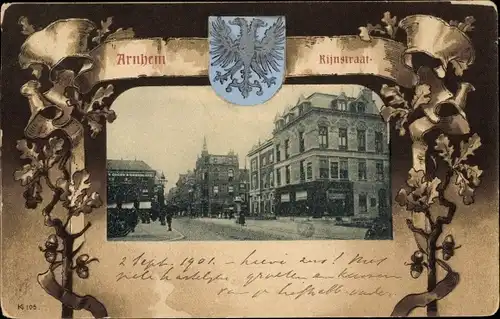 Arnhem
Rijnstraat.
2 Sept. 1901. – hierie ans! Met
vele hartelijke groeten en kussen
van je liefhebb. vader.
N 105.